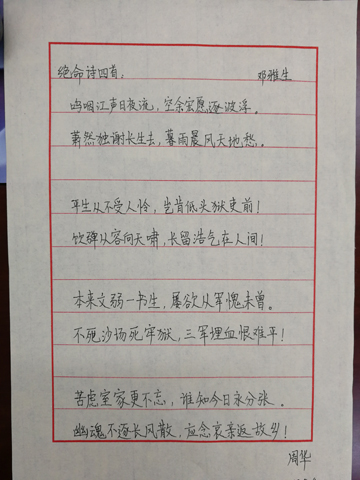 绝命诗四首： 邓雅生
呜咽江声日夜流，空余宏愿逐波浮。
萧然独谢长生去，暮雨晨风天地愁。
平生从不受人怜，岂肯低头狱吏前！
饮弹从容向天啸，长留浩气在人间！
本来文弱一书生，屡欲从军愧未曾。
不死沙场死牢狱，三军埋血恨难平！
苦虑室家更不忘，谁知今日永分张。
幽魂不逐长风散，应念哀亲返故乡！
周华